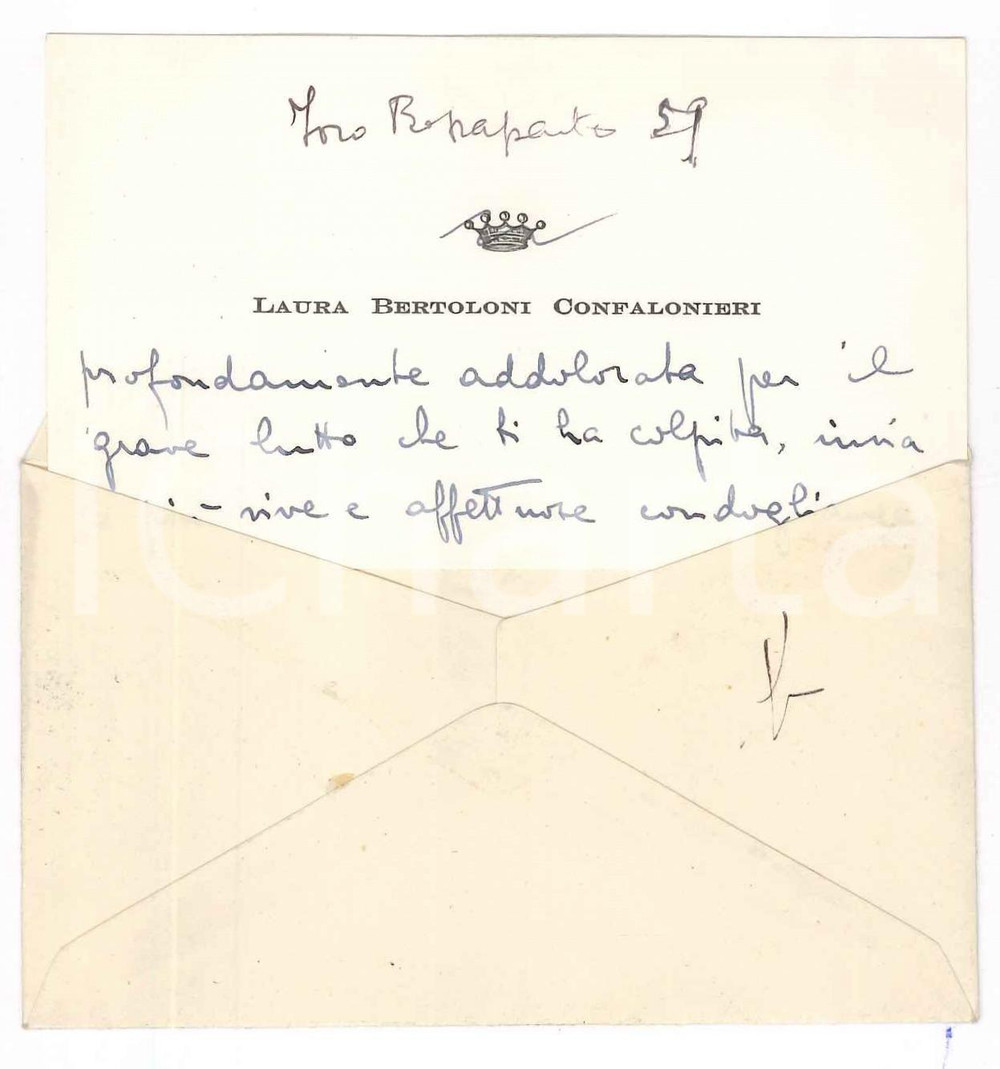 Foro Bonaparte 59
LAURA BERTOLONI CONFALONIERI
profondamente addolorata per il
grave lutto che ti ha colpita, invia
vive e affettuose condogli